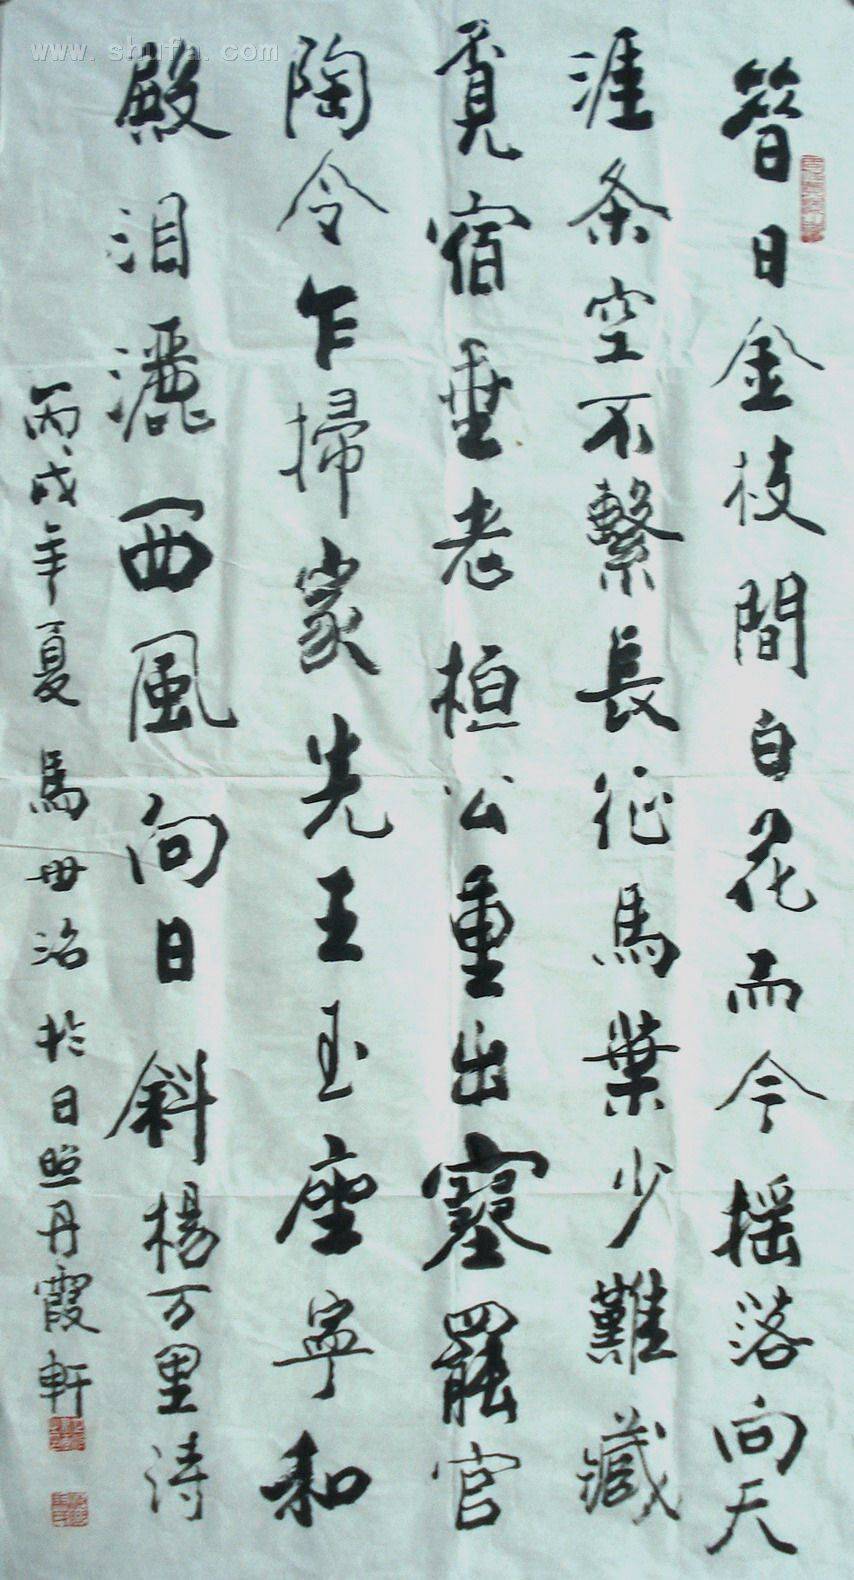 www.shufa.com
昔日金枝間白花而今摇落向天
涯条空不繫長征馬葉少難藏
覓宿垂老桓公重出塞罷官
陶令乍掃家先王玉座寧和
殿泪灑西風向日斜楊万里诗
丙戌年夏馬世於日照丹霞軒